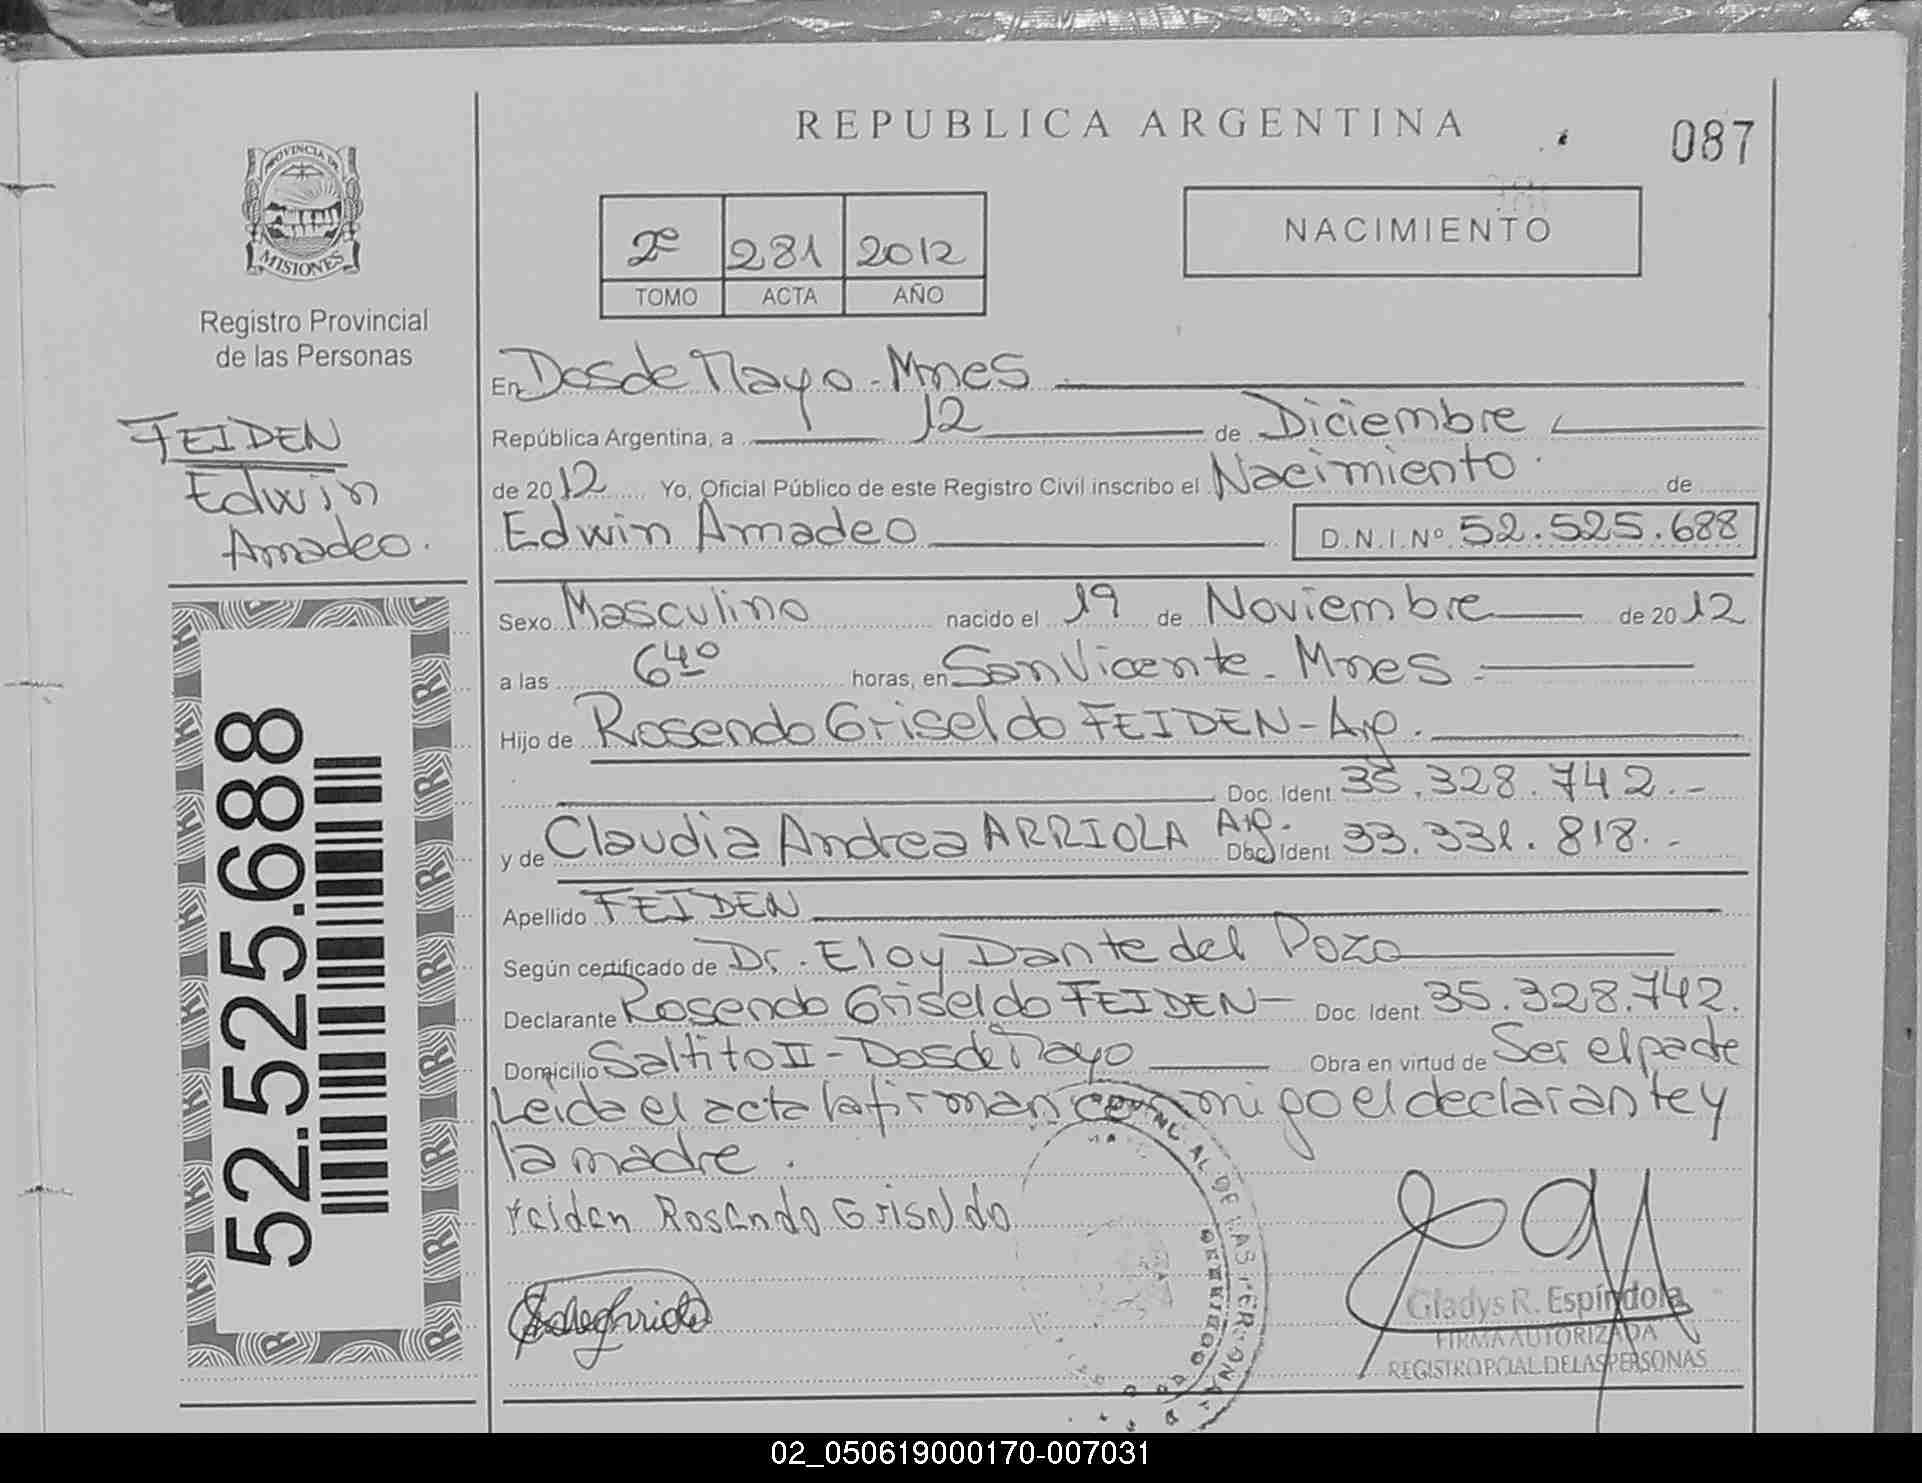 REPUBLICA ARGENTINA
087
PROVINCIA DE
MISIONES
Registro Provincial
de las Personas
FEIDEN
Edwin
Amadeo.
52.525.688
2º 281 2012
TOMO ACTA AÑO
NACIMIENTO
En Dos de Mayo - Mnes
República Argentina, a 12 de Diciembre
de 2012 Yo, Oficial Público de este Registro Civil inscribo el Nacimiento de
Edwin Amadeo D.N.I. Nº 52.525.688
Sexo Masculino nacido el 19 de Noviembre de 2012
a las 6 40 horas, en San Vicente - Mnes
Hijo de Rosendo Griseldo FEIDEN - Arg.
Doc. Ident. 35.328.742.-
y de Claudia Andrea ARRIOLA Arg. Doc. Ident. 33.331.818.-
Apellido FEIDEN
Según certificado de Dr. Eloy Dante del Pozo
Declarante Rosendo Griseldo FEIDEN - Doc. Ident. 35.328.742.
Domicilio Saltito II - Dos de Mayo Obra en virtud de Ser el padre
Leida el acta la firman conmigo el declarante y
la madre.
Feiden Rosendo Griseldo
Gladys R. Espíndola
FIRMA AUTORIZADA
REGISTRO PCIAL. DE LAS PERSONAS
02_050619000170-007031